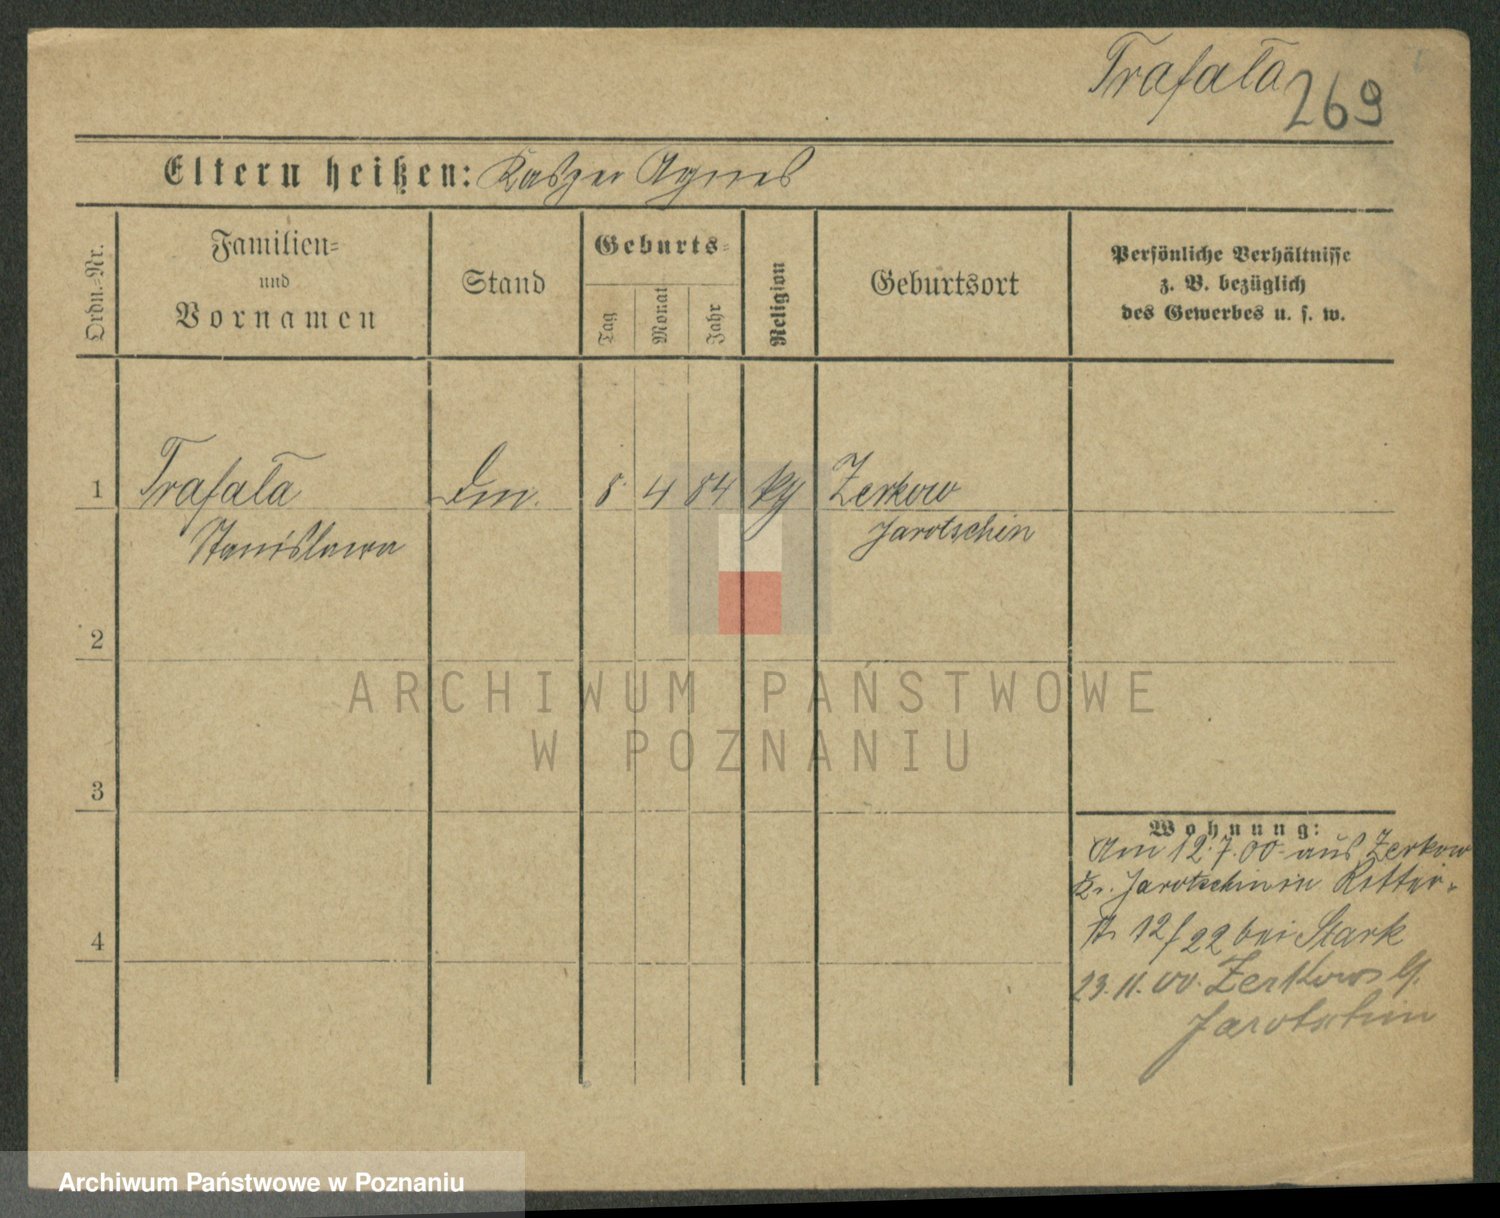 Trafała 269
Eltern heißen: Kasper Agnes
Ordn.-Nr.
Familien=
und
Vornamen
Stand
Geburts=
Tag
Monat
Jahr
Religion
Geburtsort
Persönliche Verhältnisse
z. B. bezüglich
des Gewerbes u. s. w.
1 Trafała Dm. 8. 4 84 kg Zerkow
Stanislawa Jarotschin
2
3
4
Wohnung:
Am 12.7.00 aus Zerkow
Kr. Jarotschin in Ritter-
str 12/22 bei Stark
23.11.00. Zerkow
Jarotschin
ARCHIWUM PAŃSTWOWE
W POZNANIU
Archiwum Państwowe w Poznaniu